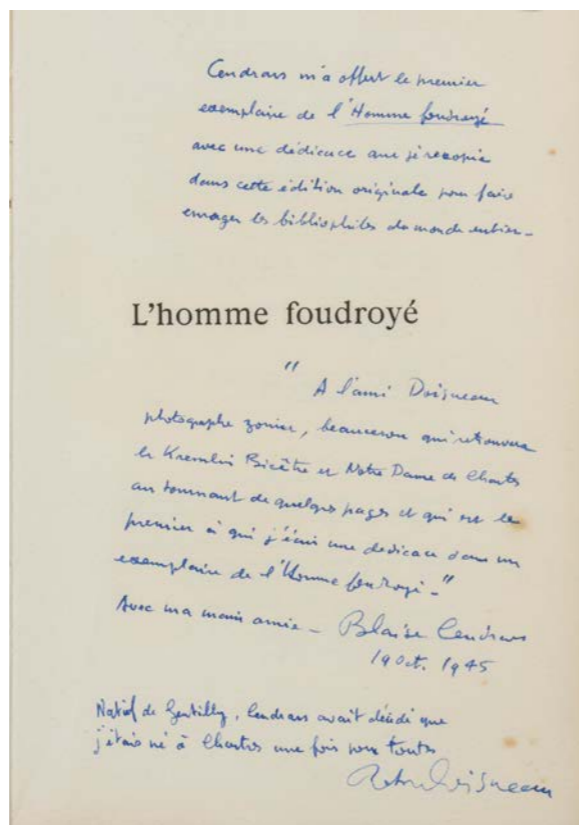 Cendrars m'a offert le premier
exemplaire de l'Homme foudroyé
avec une dédicace que je recopie
dans cette édition originale pour faire
enrager les bibliophiles du monde entier_
L'homme foudroyé
" A l'ami Doisneau
photographe zonier, beauceron qui retrouvera
le Kremlin Bicêtre et Notre Dame de Chartres
au tournant de quelques pages et qui est le
premier à qui j'écris une dédicace dans un
exemplaire de l'Homme foudroyé_"
Avec ma main amie_ Blaise Cendrars
19 Oct. 1945
Natif de Gentilly, Cendrars avait décidé que
j'étais né à Chartres une fois pour toutes
Robert Doisneau